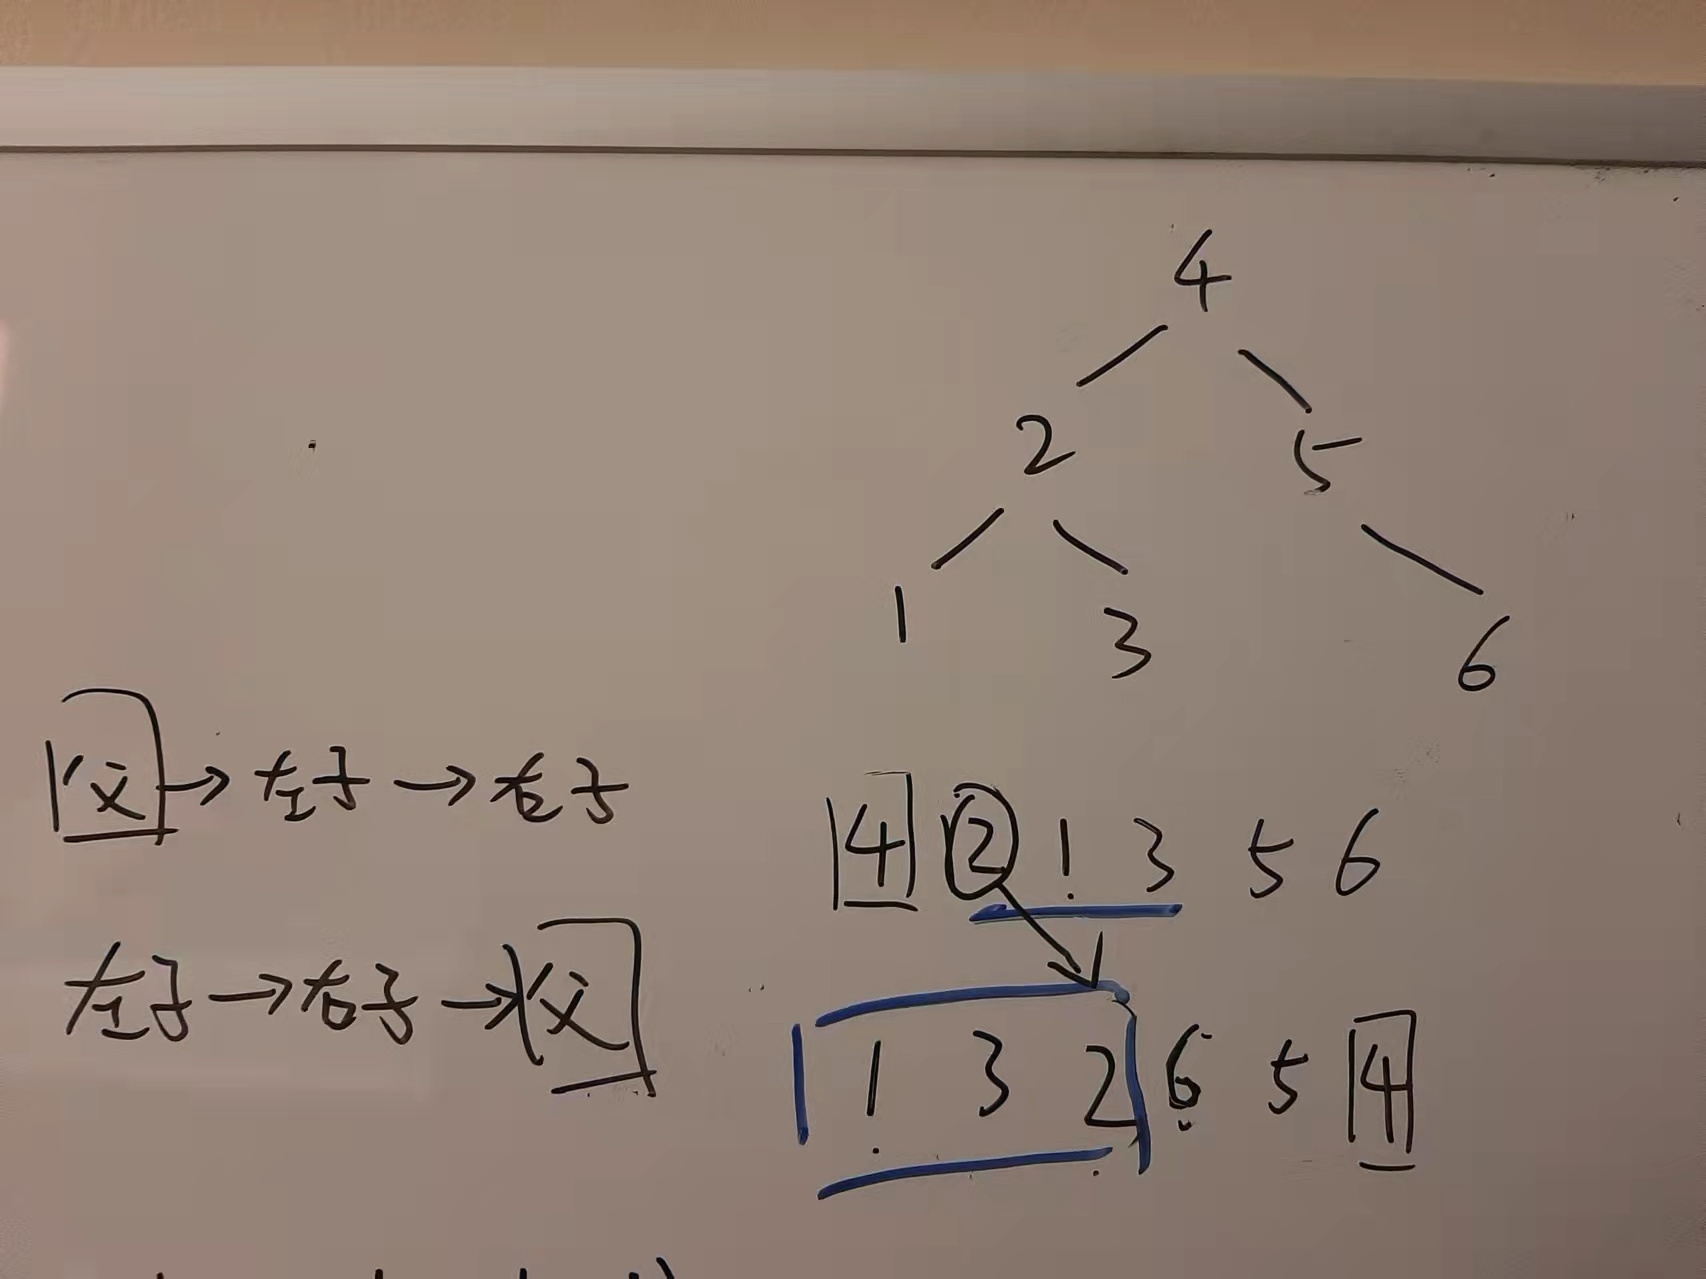 4
2 5
1 3 6
父 → 左子 → 右子
4 2 1 3 5 6
左子 → 右子 → 父
1 3 2 6 5 4